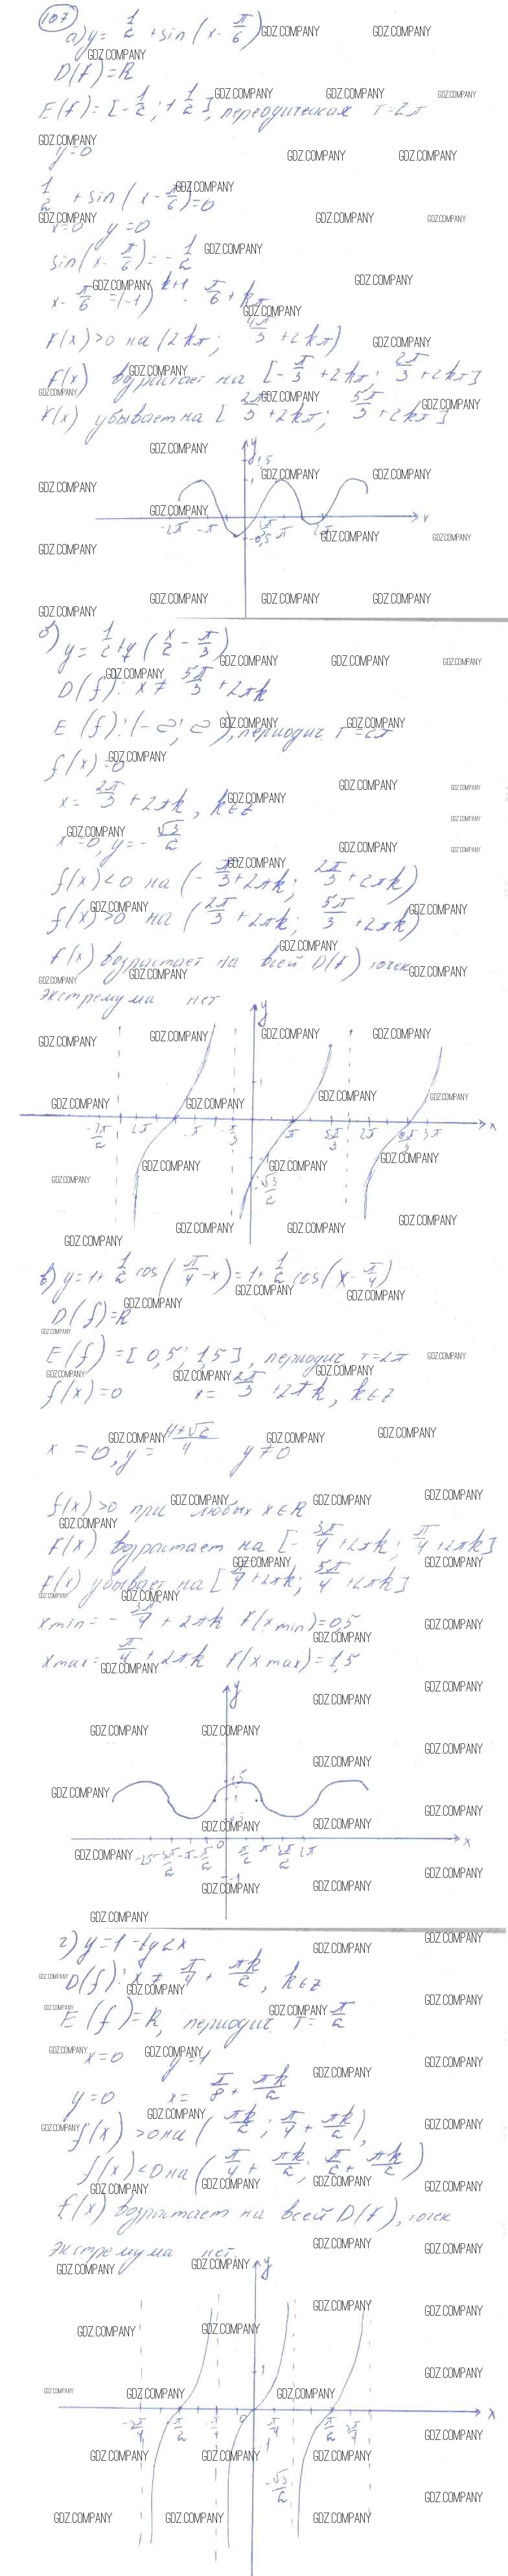 107
а) y = 1/2 + sin(x - π/6)
D(f) = R
E(f) = [-1/2; 1 1/2], переодическая T = 2π
y = 0
1/2 + sin(x - π/6) = 0
x = 0 y = 0
sin(x - π/6) = -1/2
x - π/6 = (-1)^(k+1) · π/6 + kπ
F(x) > 0 на (2kπ; 4π/3 + 2kπ)
F(x) возрастает на [-π/3 + 2kπ; 2π/3 + 2kπ]
F(x) убывает на [2π/3 + 2kπ; 5π/3 + 2kπ]
y
1,5
1
-2π -π -0,5 2π/3 π 2π x
б) y = 1/2 tg(x/2 - π/3)
D(f): x ≠ 5π/3 + 2πk
E(f): (-∞; ∞), периодич. T = 2π
f(x) = 0
x = 2π/3 + 2πk, k∈z
x = 0, y = -√3/2
f(x) < 0 на (-π/3 + 2πk; 2π/3 + 2πk)
f(x) > 0 на (2π/3 + 2πk; 5π/3 + 2πk)
f(x) возрастает на всей D(f), точек
экстремума нет
y
1
-7π/2 2π -π -π/3 π 5π/3 2π 8π/3 3π x
-1
-√3/2
в) y = 1 + 1/2 cos(π/4 - x) = 1 + 1/2 cos(x - π/4)
D(f) = R
E(f) = [0,5; 1,5], периодич T = 2π
f(x) = 0 x = 2π/3 + 2πk, k∈z
x = 0, y = 4+√2/4 y ≠ 0
f(x) > 0 при любых x∈R
F(x) возрастает на [-3π/4 + 2πk; π/4 + 2πk]
F(x) убывает на [π/4 + 2πk; 5π/4 + 2πk]
xmin = -3π/4 + 2πk F(xmin) = 0,5
xmax = π/4 + 2πk F(xmax) = 1,5
y
1,5
1
-2π -3π/2 -π -π/2 0 π/2 π 3π/2 2π x
-1
г) y = 1 - tg2x
D(f): x ≠ π/4 + πk/2, k∈z
E(f) = R, периодич. T = π/2
x = 0 y = 1
y = 0 x = π/8 + πk/2
f(x) > 0 на (πk/2; π/4 + πk/2)
f(x) < 0 на (π/4 + πk/2; π/2 + πk/2)
f(x) возрастает на всей D(f), точек
экстремума нет
y
1
-3π/4 -π/2 -π/4 0 π/4 π/2 3π/4 x
-1
-√3/2
GDZ.COMPANY